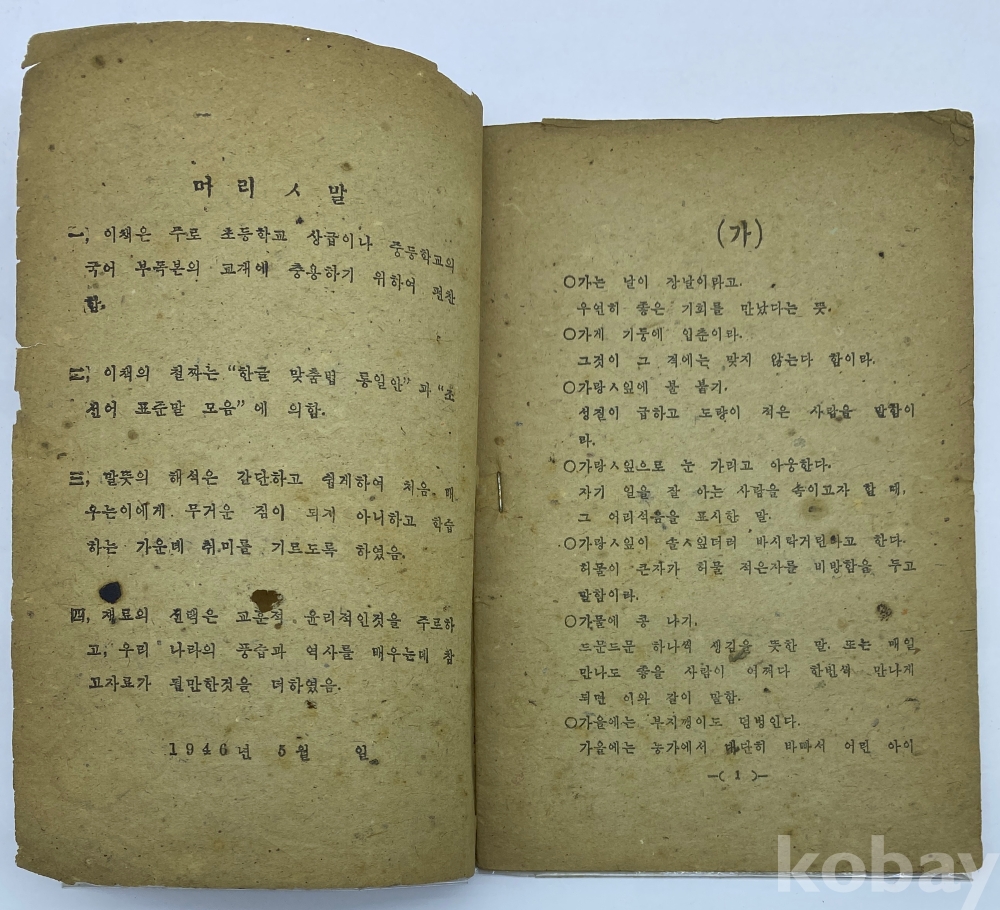 머 리 ㅅ 말
一, 이책은 주로 초등학교 상급이나 중등학교의
국어 부독본의 교재에 충용하기 위하여 편찬
함.
二, 이책의 철짜는 “한글 맞춤법 통일안”과 “조
선어 표준말 모음”에 의함.
三, 말뜻의 해석은 간단하고 쉽게하여 처음 배
우는이에게 무거운 짐이 되게 아니하고 학습
하는 가운데 취미를 기르도록 하였음.
四, 재료의 선택은 교훈적 윤리적인것을 주로하
고, 우리 나라의 풍습과 역사를 배우는데 참
고자료가 될만한것을 더하였음.
1946년 5월 일
(가)
○가는 날이 장날이라고.
우연히 좋은 기회를 만났다는 뜻.
○가게 기둥에 입춘이라.
그것이 그 격에는 맞지 않는다 함이라.
○가랑ㅅ잎에 불 붙기.
성결이 급하고 도량이 적은 사람을 말함이
라.
○가랑ㅅ잎으로 눈 가리고 아웅한다.
자기 일을 잘 아는 사람을 속이고자 할 때,
그 어리석음을 표시한 말.
○가랑ㅅ잎이 솔ㅅ잎더러 바시락거린다고 한다.
허물이 큰자가 허물 적은자를 비방함을 두고
말함이라.
○가물에 콩 나기.
드문드문 하나씩 생김을 뜻한 말. 또는 매일
만나도 좋을 사람이 어쩌다 한번씩 만나게
되면 이와 같이 말함.
○가을에는 부지깽이도 덤벙인다.
가을에는 농가에서 대단히 바빠서 어린 아이
—( 1 )—
kobay